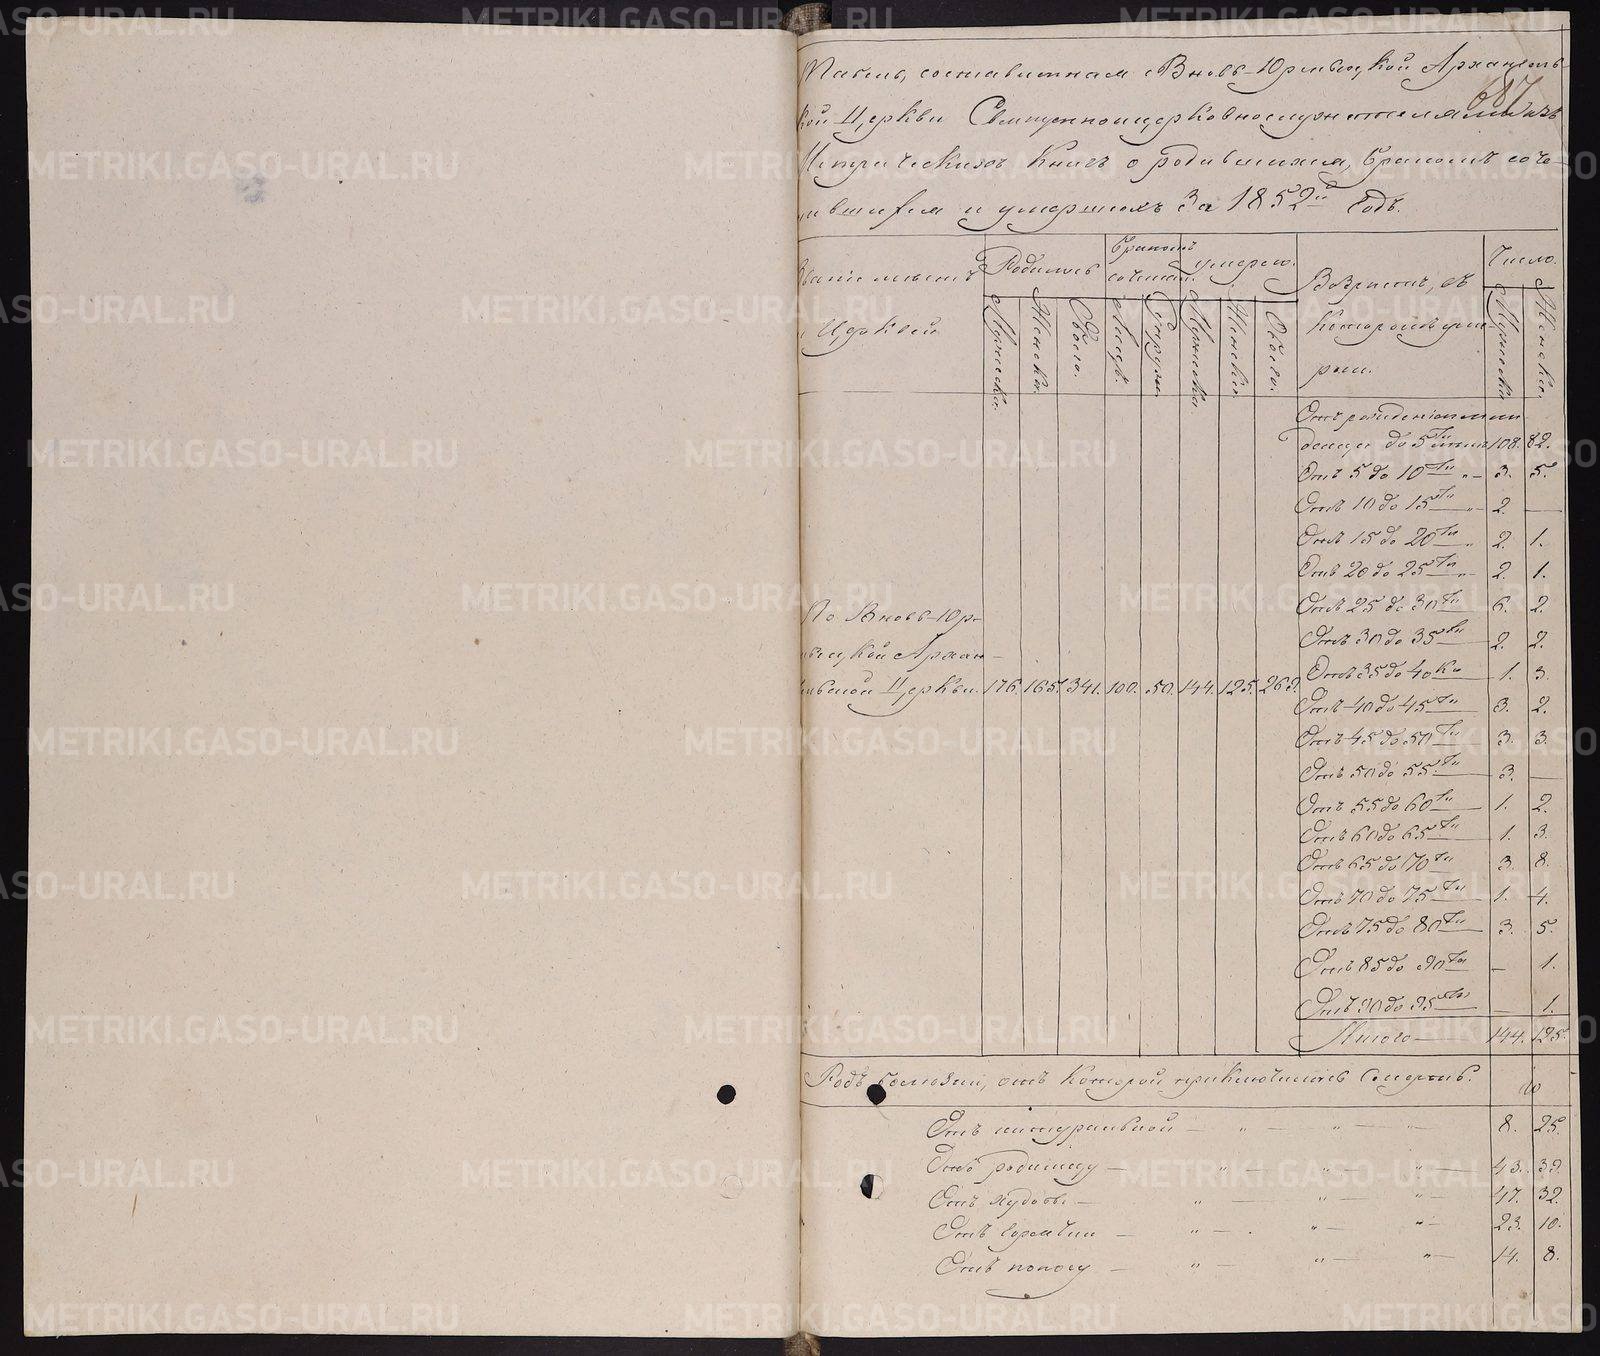 Табель, составленная Вновь-Юрмыцкой Архангель-
ской Церкви Священноцерковнослужителями изъ
687
Метрическихъ Книгъ о родившихся, бракомъ соче-
тавшихся и умершихъ За 1852й Годъ.
Званіе мѣстъ и Церквей
Родилось
Бракомъ сочетан.
умерло.
Возрастъ, въ которомъ умерли.
Число.
Мужеска.
Женска.
Обоего.
Лицъ.
Супруж.
Мужеска
Женска.
Обоего.
Мужеска
Женска.
Отъ рожденія
до 5ти лѣтъ 108. 82.
Отъ 5 до 10ти „ — 3. 5.
Отъ 10 до 15ти — 2. —
Отъ 15 до 20ти „ 2. 1.
Отъ 20 до 25ти „ 2. 1.
Отъ 25 до 30ти 6. 2.
Отъ 30 до 35ти 2. 2.
Отъ 35 до 40ка 1. 3.
Отъ 40 до 45ти 3. 2.
Отъ 45 до 50ти 3. 3.
Отъ 50 до 55ти 3. —
Отъ 55 до 60ти 1. 2.
Отъ 60 до 65ти 1. 3.
Отъ 65 до 70ти 3. 8.
Отъ 70 до 75ти 1. 4.
Отъ 75 до 80ти 3. 5.
Отъ 85 до 90та — 1.
Отъ 90 до 95ти — 1.
Итого — 144. 125.
По Вновь-Юр-
мыцкой Архан-
гельской Церкви. 176. 165. 341. 100. 50. 144. 125. 269.
Родъ болѣзни, отъ которой приключилась Смерть.
Отъ натуральной — „ — „ — „ — 8. 25.
Отъ родимцу — „ — „ — „ — 43. 39.
Отъ худобы — „ — „ — „ — 47. 32.
Отъ горячки — „ — „ — „ — 23. 10.
Отъ поносу — „ — „ — „ — 14. 8.
METRIKI.GASO-URAL.RU